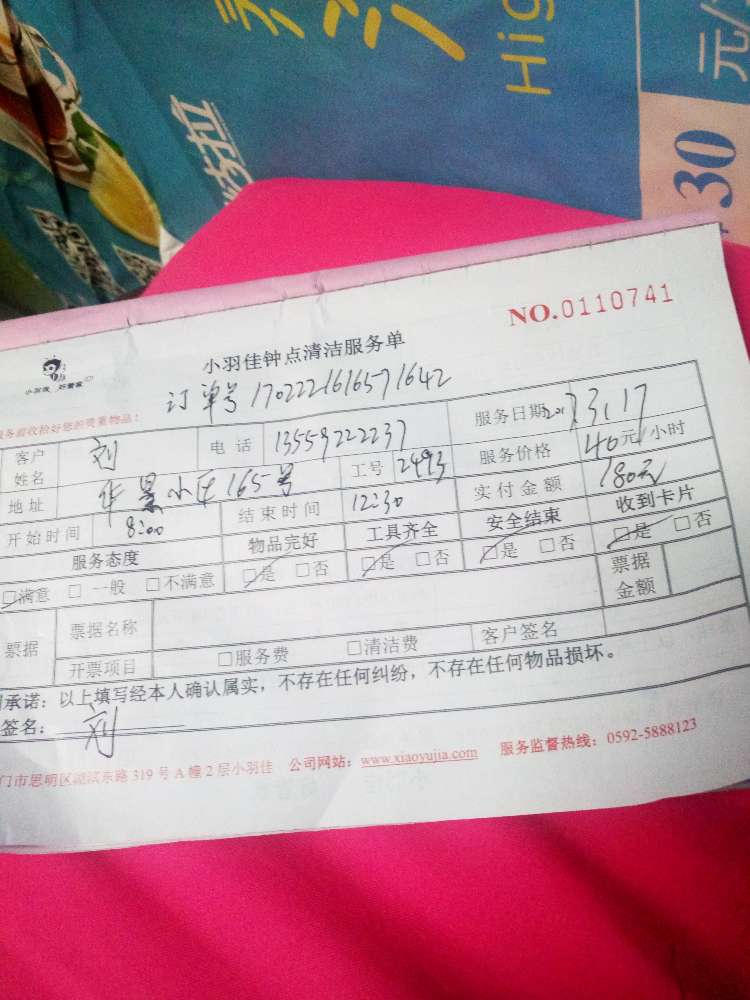 High
30 元/
NO.0110741
小羽佳 好管家
小羽佳钟点清洁服务单
订单号 1702221616571642
服务前收拾好您的贵重物品：
客户姓名 刘 电话 13559222237 服务日期 2017 3.17
地址 华景小区165号 工号 2493 服务价格 40元/小时
开始时间 8:00 结束时间 12:30 实付金额 180元
服务态度 物品完好 工具齐全 安全结束 收到卡片
□满意 □一般 □不满意 □是 □否 □是 □否 □是 □否 □是 □否
票据 票据名称 票据金额
开票项目 □服务费 □清洁费 客户签名
承诺：以上填写经本人确认属实，不存在任何纠纷，不存在任何物品损坏。
签名： 刘
门市思明区湖滨东路 319 号 A 幢 2 层小羽佳 公司网站：www.xiaoyujia.com 服务监督热线：0592-5888123